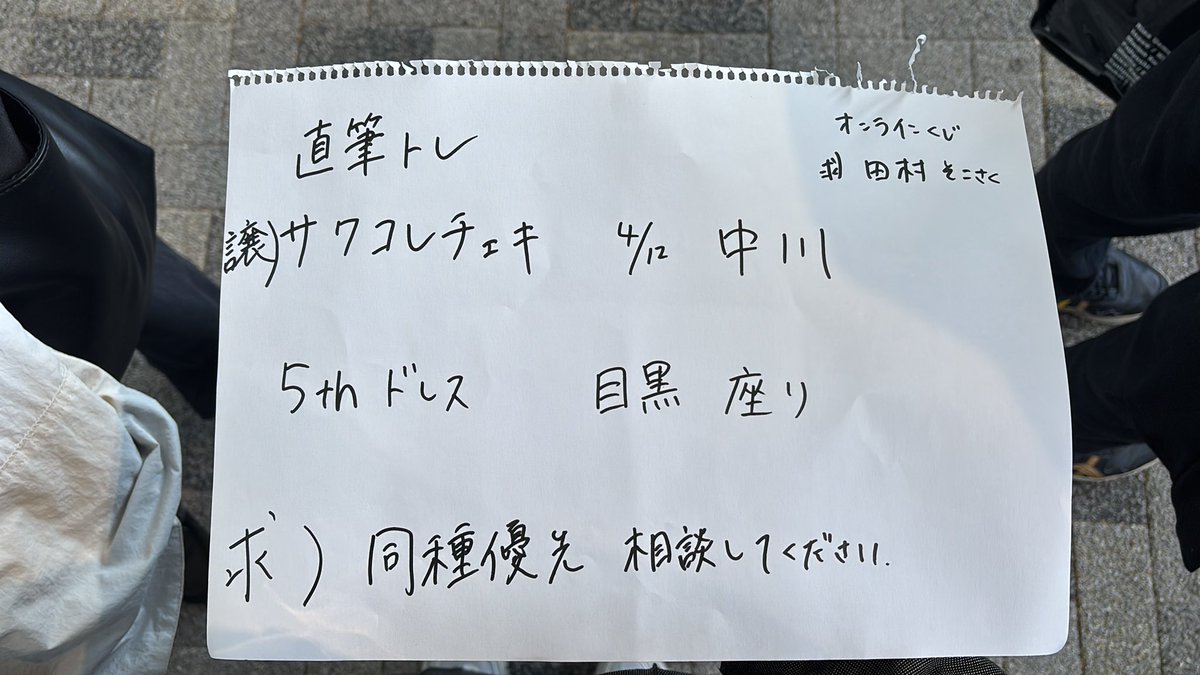 直筆トレ
オンラインくじ
求) 田村 そこさく
譲)サワコレチェキ 4/12 中川
5th ドレス 目黒 座り
求) 同種優先 相談してください.